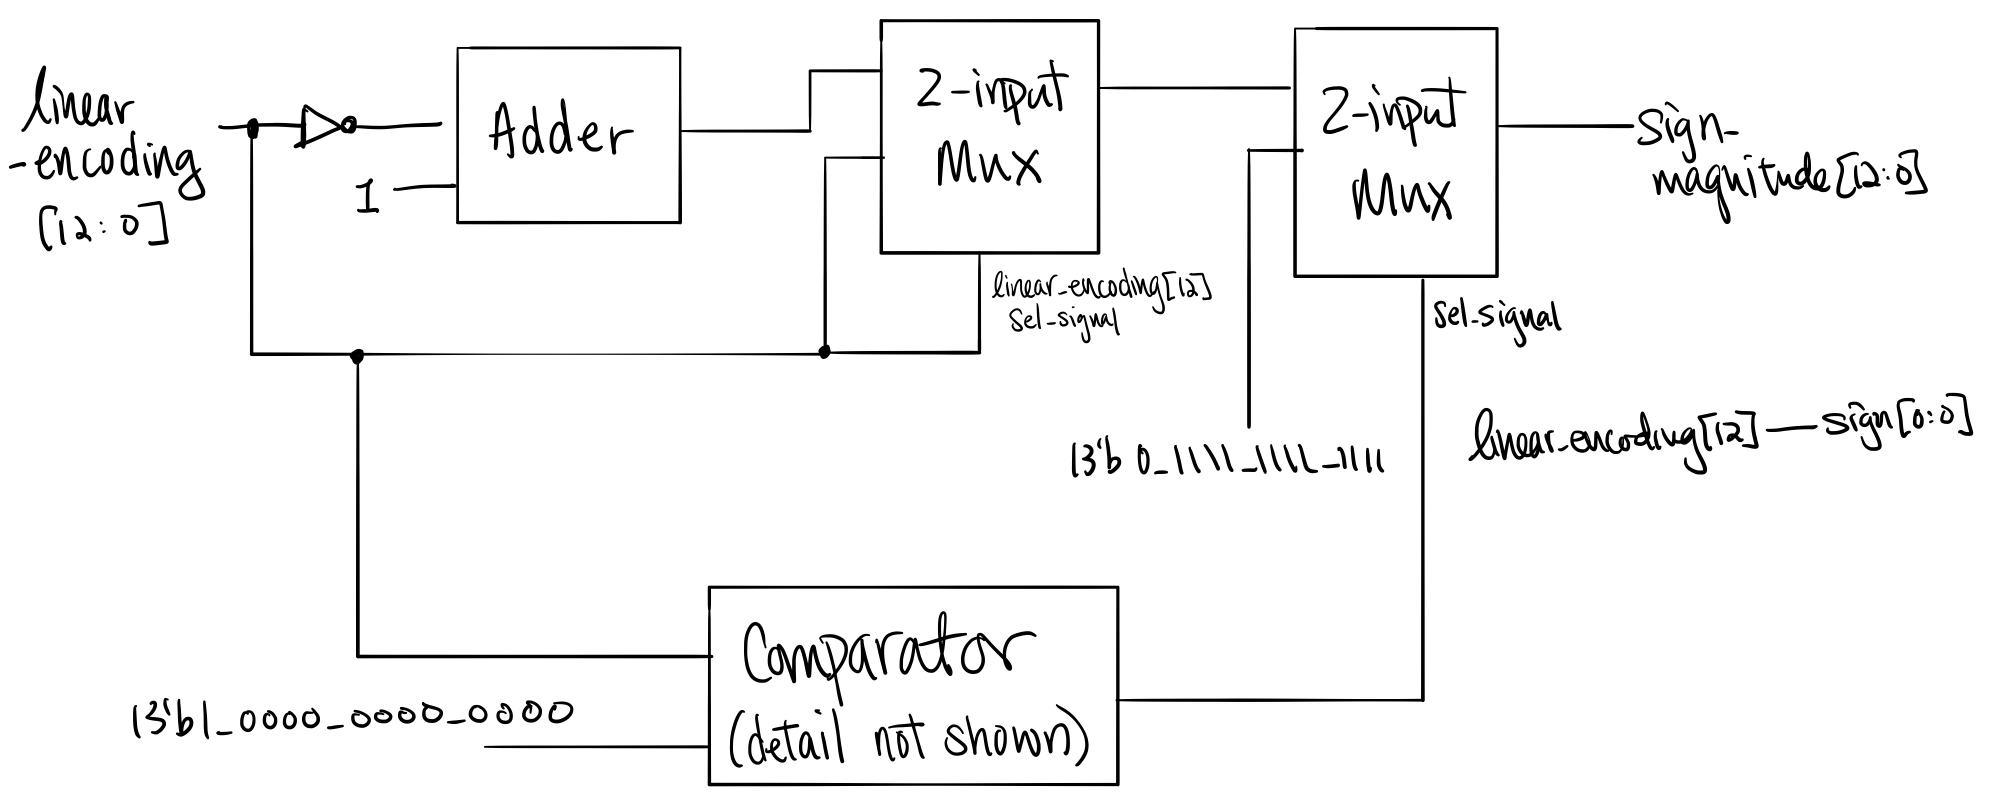 linear
-encoding
[12:0]
1
Adder
2-input
Mux
linear-encoding[12]
sel-signal
2-input
Mux
sel-signal
sign-
magnitude[12:0]
13'b 0_1111_1111_1111
linear-encoding[12] — sign[0:0]
Comparator
(detail not shown)
13'b1_0000_0000_0000